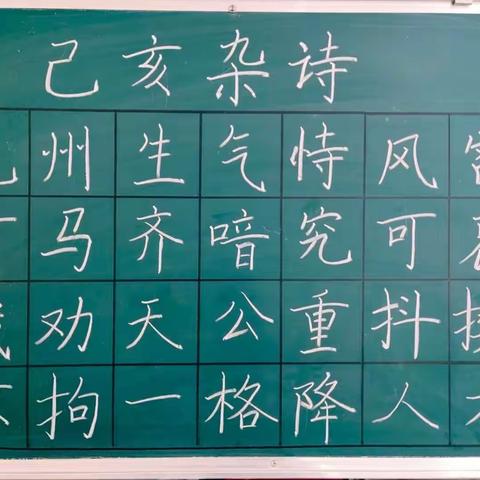 己亥杂诗
州生气恃风
马齐喑究可
劝天公重抖
拘一格降人